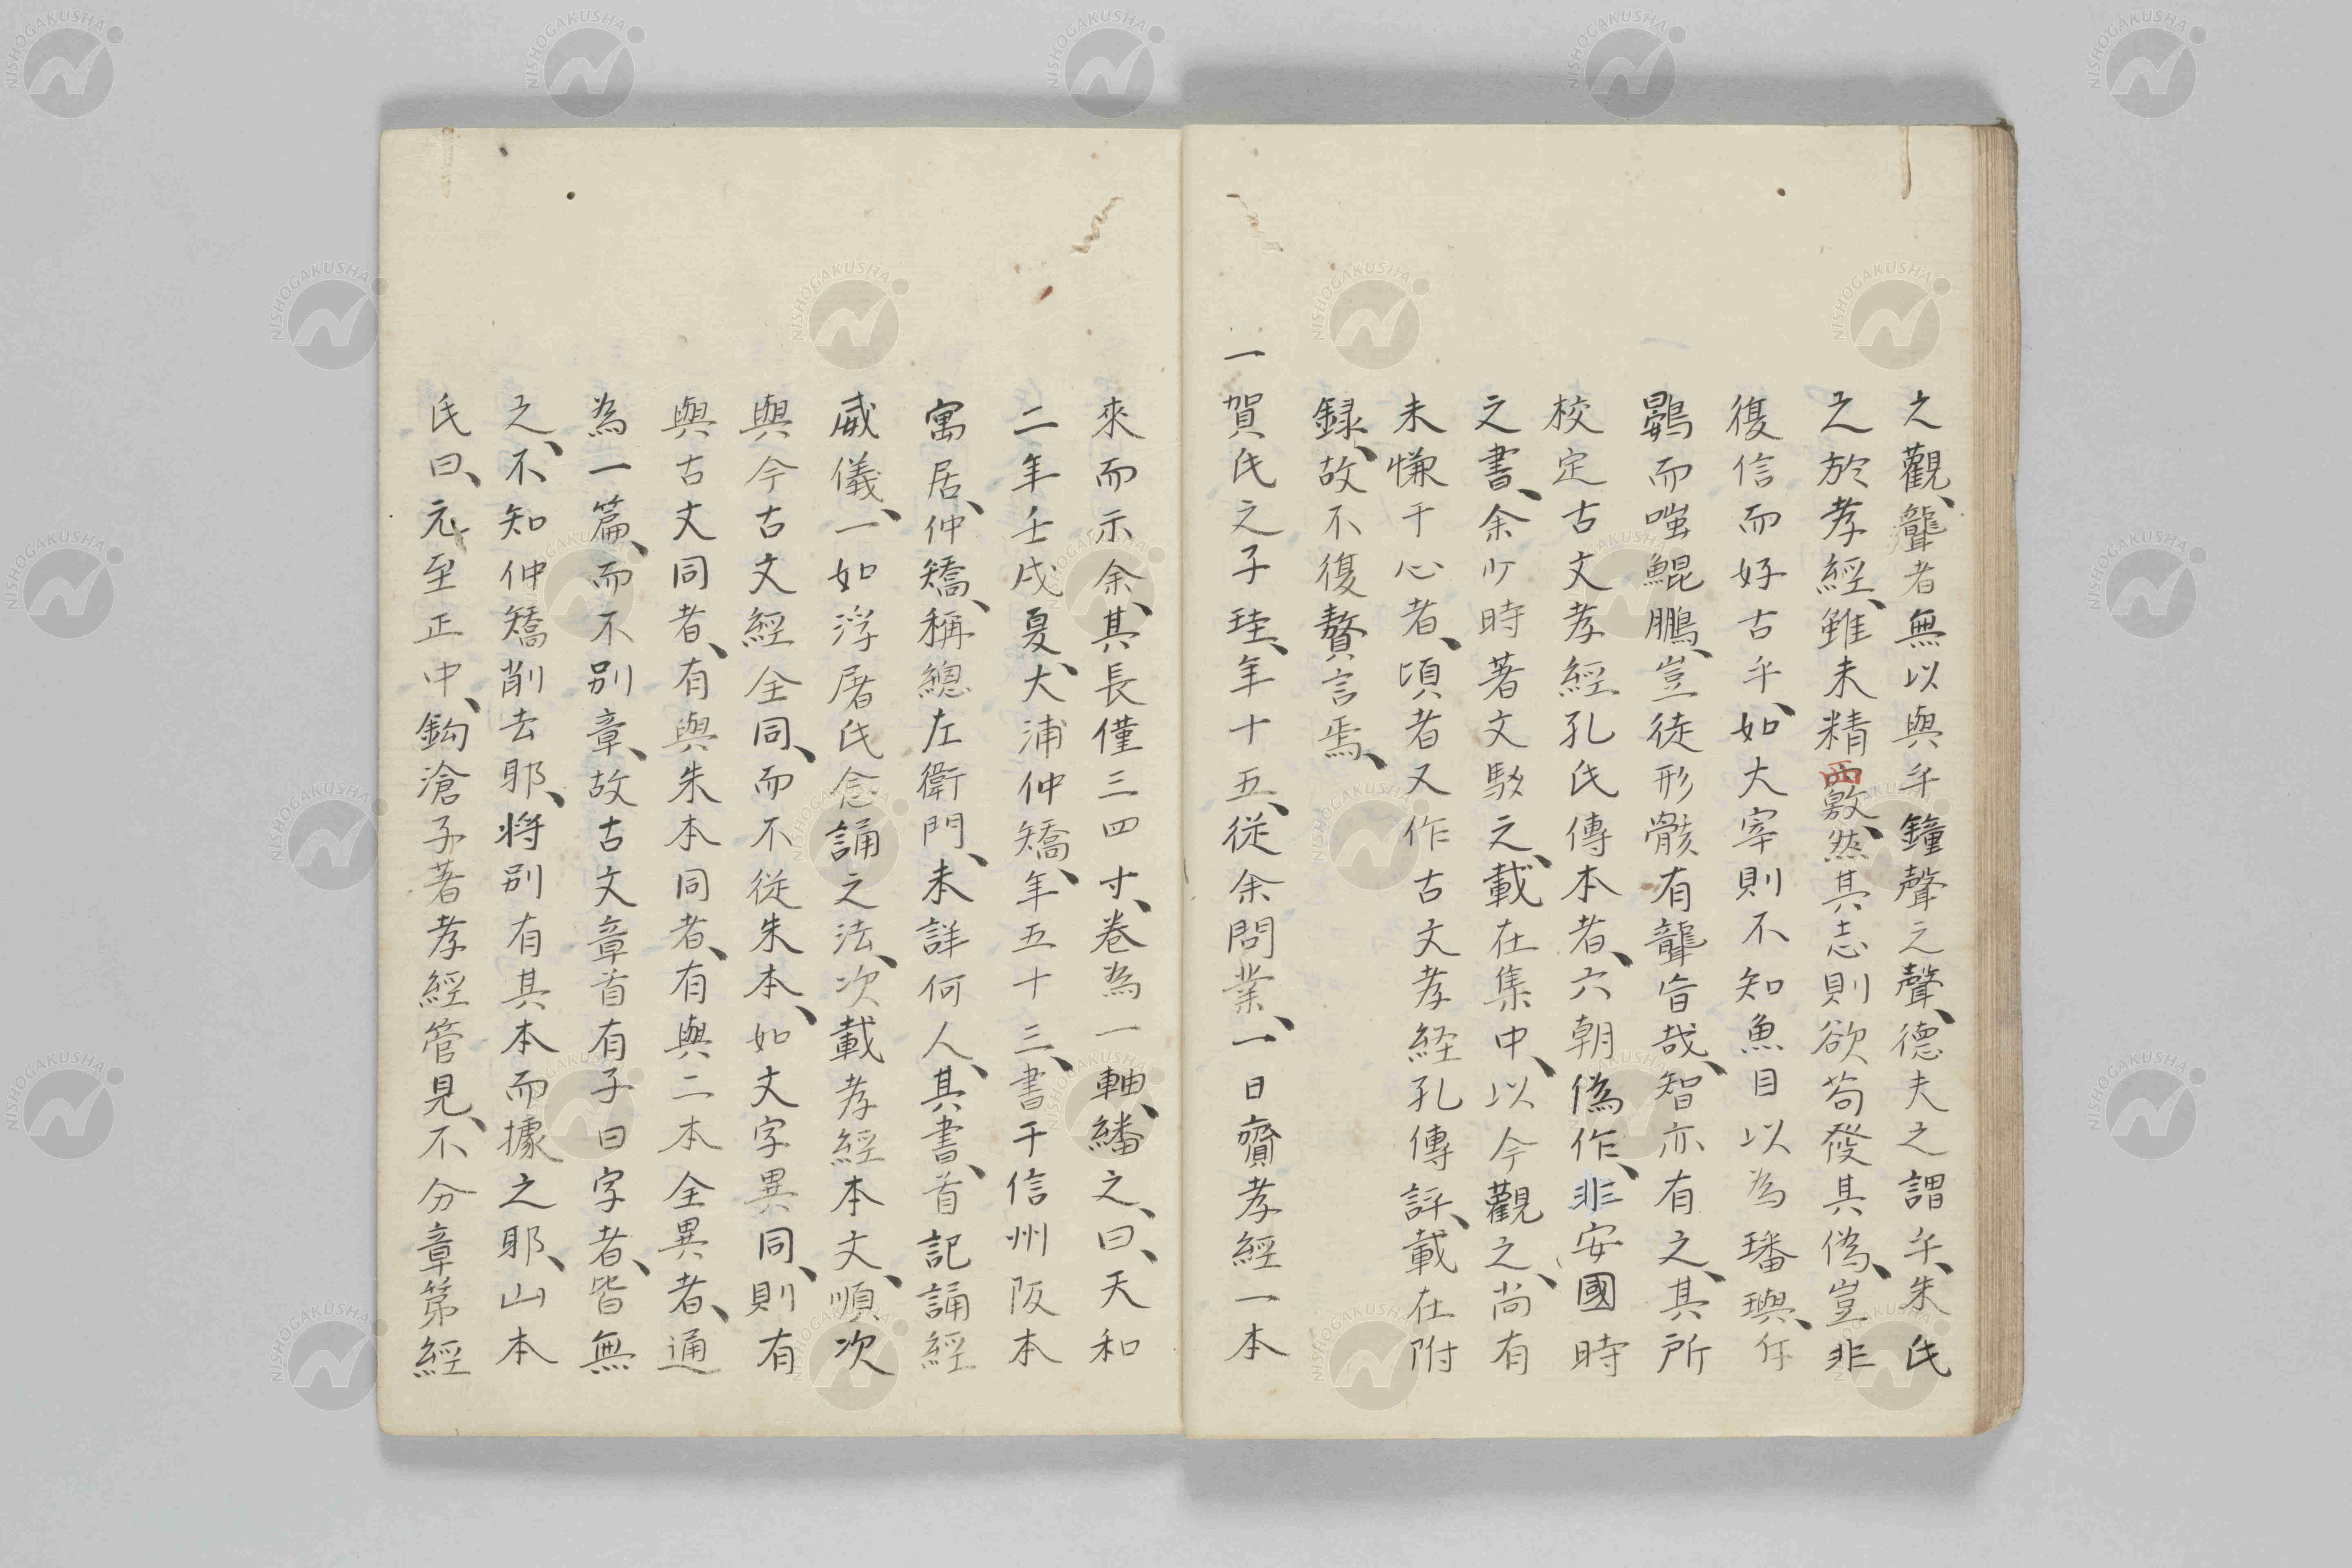 之觀、聾者無以與乎鐘聲之聲、德夫之謂乎、朱氏
之於孝經、雖未精覈、然其志則欲苟發其偽、豈非
復信而好古乎、如大宰則不知魚目以為璠璵、斥
鷃而嗤鯤鵬、豈徒形骸有聾盲哉、智亦有之、其所
校定古文孝經孔氏傳本者、六朝偽作、非安國時
之書、余少時著文駁之、載在集中、以今觀之、尚有
未慊于心者、頃者又作古文孝経孔傳評、載在附
録、故不復贅言焉、
一賀氏之子珪、年十五、従余問業、一日齎孝經一本
來而示余、其長僅三四寸、卷為一軸、繙之、曰、天和
二年壬戌夏、大浦仲矯、年五十三、書于信州阪本
寓居、仲矯、稱總左衛門、未詳何人、其書、首記誦經
威儀、一如浮屠氏念誦之法、次載孝經本文、順次
與今古文經全同、而不從朱本、如文字異同、則有
與古文同者、有與朱本同者、有與二本全異者、通
為一篇、而不別章、故古文章首有子曰字者、皆無
之、不知仲矯削去耶、将別有其本而據之耶、山本
氏曰、元至正中、鈎滄子著孝經管見、不分章第經